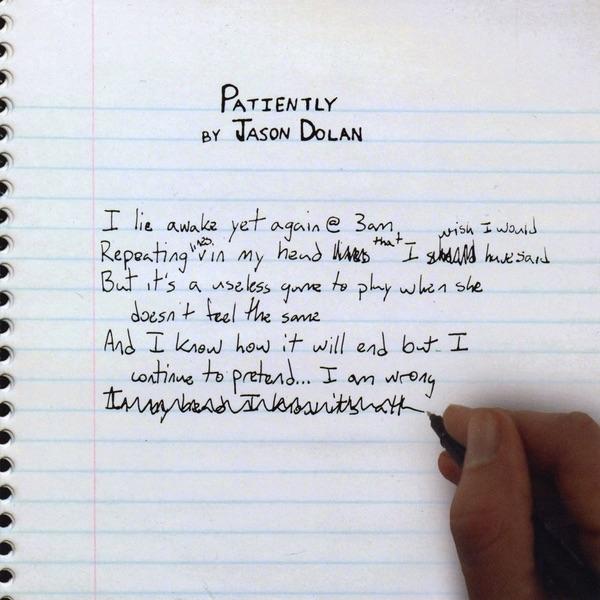 PATIENTLY
BY JASON DOLAN
I lie awake yet again @ 3am
wish I would
Repeating lines in my head that I have said
But it's a useless game to play when she
doesn't feel the same
And I know how it will end but I
continue to pretend... I am wrong